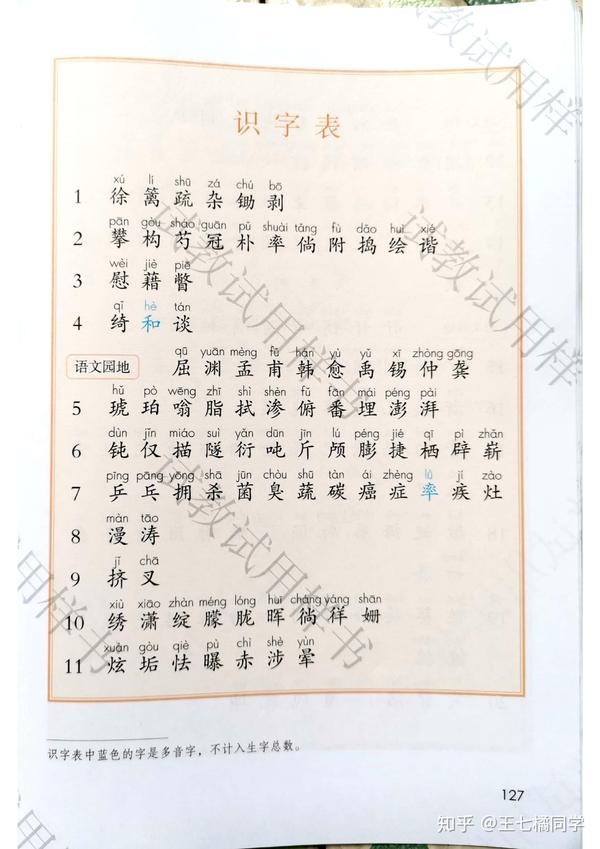 识字表
xú lí shū zá chú bō
1 徐 篱 疏 杂 锄 剥
pān gòu sháo guān pǔ shuài tǎng fù dǎo huì xié
2 攀 构 芍 冠 朴 率 倘 附 捣 绘 谐
wèi jiè piē
3 慰 藉 瞥
qǐ hè tán
4 绮 和 谈
qū yuān mèng fǔ hán yù yǔ xī zhòng gōng
语文园地 屈 渊 孟 甫 韩 愈 禹 锡 仲 龚
hǔ pò wēng zhī shì shèn fǔ fān mái péng pài
5 琥 珀 嗡 脂 拭 渗 俯 番 埋 澎 湃
dùn jǐn miáo suì yǎn dūn jīn lú péng jié qī pì zhǎn
6 钝 仅 描 隧 衍 吨 斤 颅 膨 捷 栖 辟 崭
pīng pāng yōng shā jūn chòu shū tàn ái zhèng lǜ jí zào
7 乒 乓 拥 杀 菌 臭 蔬 碳 癌 症 率 疾 灶
màn tāo
8 漫 涛
jǐ chā
9 挤 叉
xiù xiāo zhàn méng lóng huī cháng yáng shān
10 绣 潇 绽 朦 胧 晖 徜 徉 姗
xuàn gòu qiè pù chì shè yùn
11 炫 垢 怯 曝 赤 涉 晕
识字表中蓝色的字是多音字，不计入生字总数。
127
知乎 @王七橘同学
试教试用样
试教试用样书
试教试用样
试教试用样书
用样书
用样书